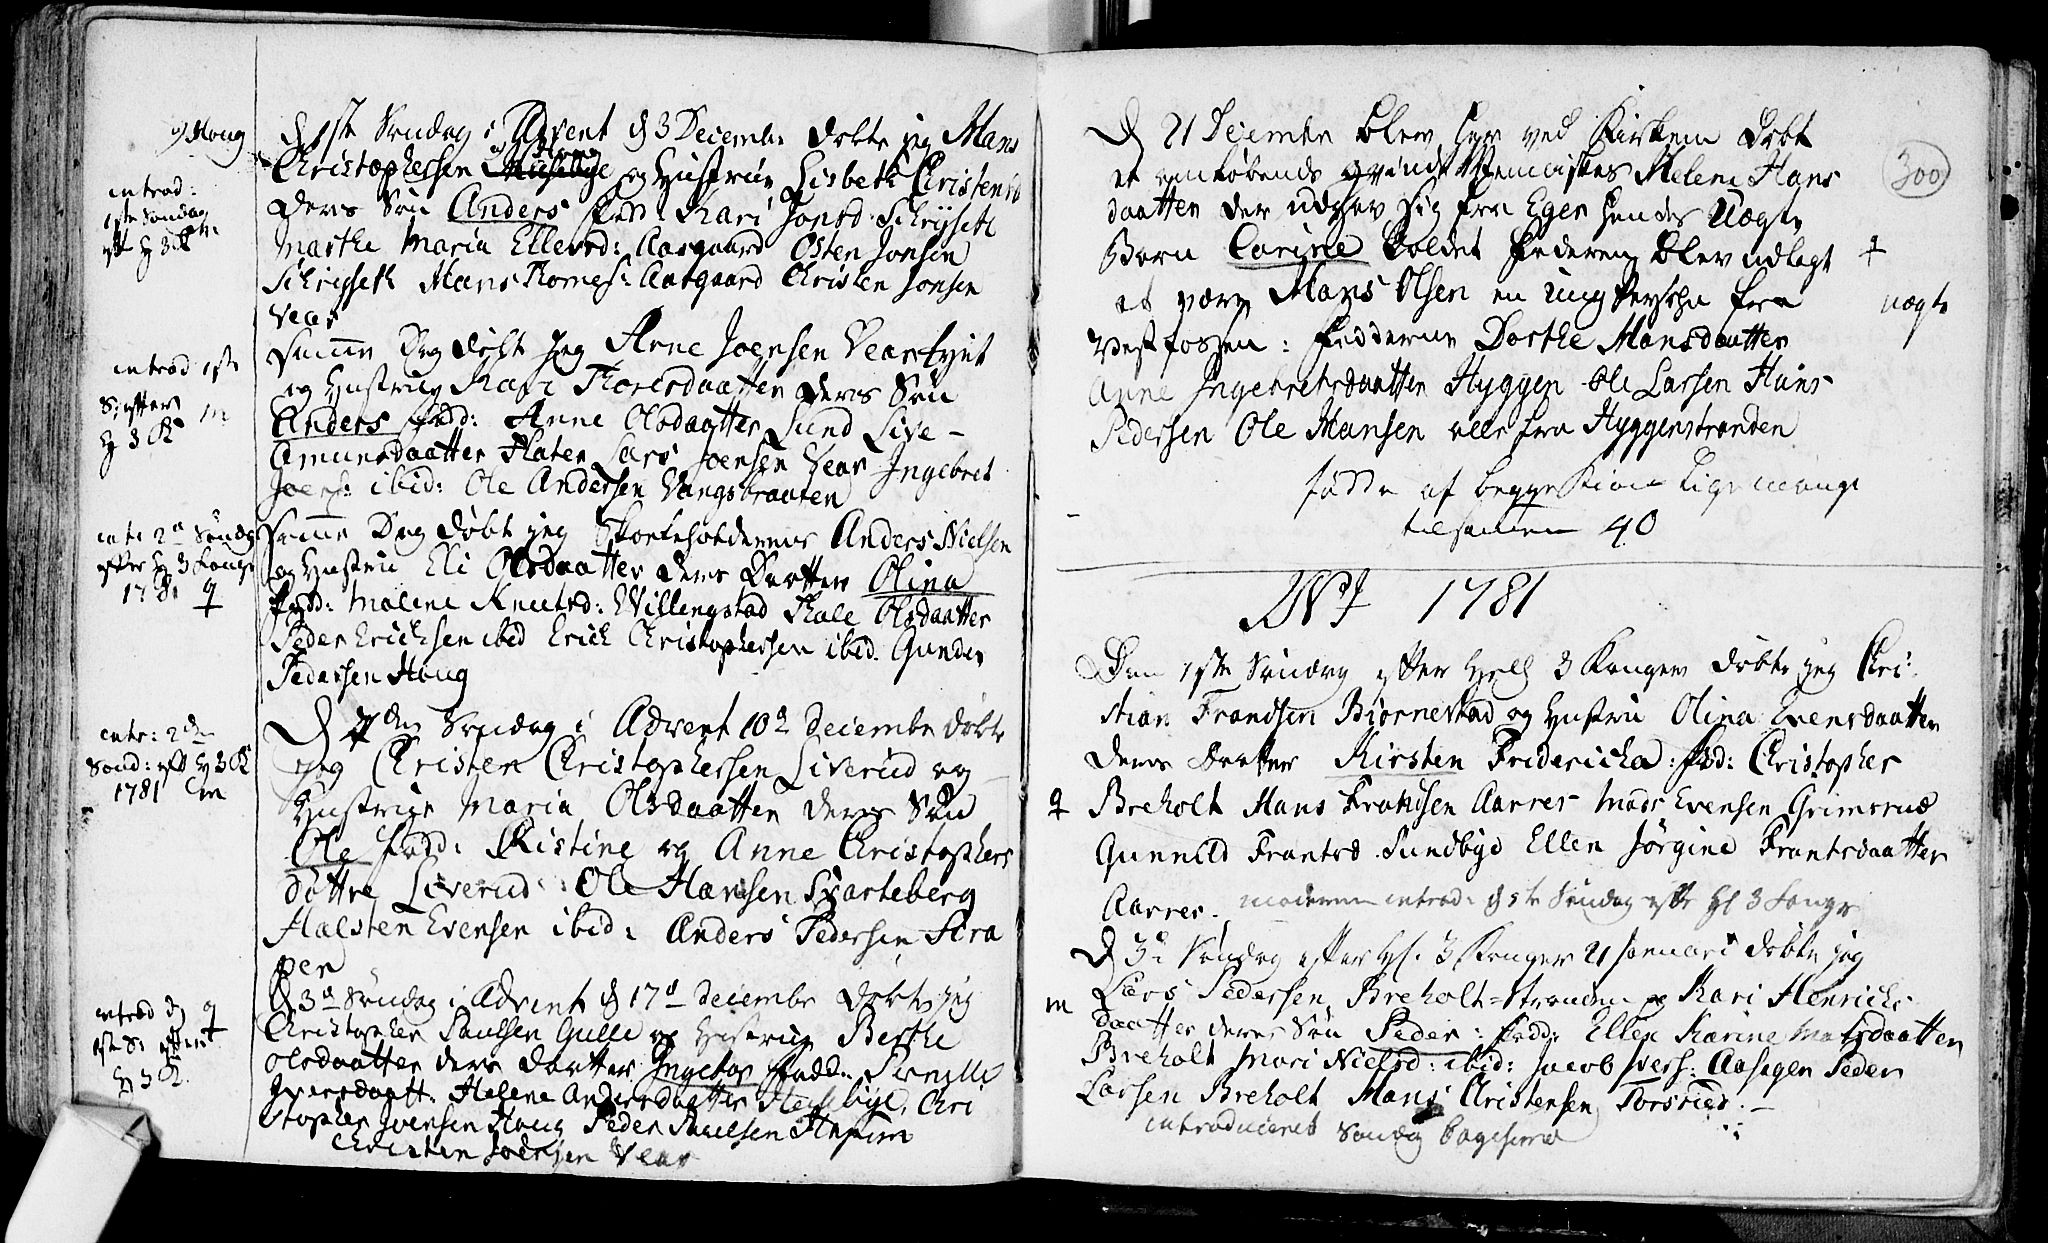 ɔ/ Houg
D 1ste Søndag i Advent d 3 Decembr dobte jeg Hans
Christophersen Huseby Houg og Hustrue Lisbeth Christensd
deres Søn Anders fadd: Kari Jonsd Schrifseth
Marthe Maria Ellevsd: Aasgaard Osten Jonsen
Schrifseth Hans Thomes: Aasgaard Christen Jonsen
Vear
introd:
1ste Søndag
eft H 3 K m
Samme Dag døbt jeg Arne Joensen Vear
og Hustrue Kari Thoresdaatter deres Søn
Anders fadd: Anne Olsdaatter Lund Live
Amunsdaatter Flaten Lars Joensen Vear Ingebret
Joens: ibid: Ole Andersen Vangsbraaten
introd 1ste
S: efter
H 3 K m
Samme Dag døbt jeg Anders Nielsen
og Hustru Eli Olsdaatter deres Daatter Olina
fadd: Malene Knutsd: Willengstad Thale Olsdaatter
Peder Erichsen ibid Erich Christophersen ibid. Gunder
Pedersen Houg
intr 2n Søndag
efter H 3 Konge
1781 ♀
D 2den Søndag i Advent 10d Decembr døbte
jeg Christen Christophersen Liverud og
Hustrue Maria Olsdaatter deres Søn
Ole fadd: Kistine og Anne Christophers
døttre Liverud: Ole Hansen Svarteberg
Halsten Evensen ibid: Anders Pedersen
per
intr: 2den
Sønd: eft H 3 K
1781 m
D 3d Søndag i Advent d 17d Decembr døbte jeg
Christopher Paulsen Gulle og Hustrue Berthe
Olsdaatter deres daatter Ingebor fadd: Pernille
Iversdaatt: Helene Andersdaatter Huseby, Chri
stopher Joensen Houg Peder Paulsen
Christen Joensen Vear
introd d ♀
1ste S: efter
H 3 K.
300
D 21 Decembr blev her ved Kirken døbt
et omløbende qvinde Helene Hans
daatter der udgav sig fra Eger hendes Uægte
Barn Carine kaldet Faderen blev udlagt ♀
at være Hans Olsen en ung Persohn fra
uægte
Vestfossen: Fadderne Dorthe Hansdaatter
Anne Ingebretsdaatter Hyggen Ole Larsen Hans
Pedersen Ole Hansen alle fra Hyggenstranden
fødde af begge Kiøn lige mange
tilsammen 40
1781
Den 1ste Søndag efter Hell 3 Konger døbte jeg Chri
stian Frandsen Biørnestad og Hustru Olina Evensdaatter
deres Daatter Kirsten Fridericha: fad: Christopher
♀ Breholt Hans Frandsen Aarres Mads Evensen Grimsrud
Gunnild Frantsd Sundbye Ellen Jørgine Frantsdaatter
Aarres. moderen introd: d 5te Søndag efter H 3 Konge
D 3d Søndag efter H. 3 Konger 21 Januari døbte jeg
m Lars Pedersen Breholt-stranden og Kari Henrichs
daatter deres Søn Peder: fadd: Ellen Karine Madsdaatter
Breholt Mari Nielsd: ibid: Jacob Ivers: Aasegen Peder
Larsen Breholt Hans Christensen Torsrud. –
introduceret Søndag